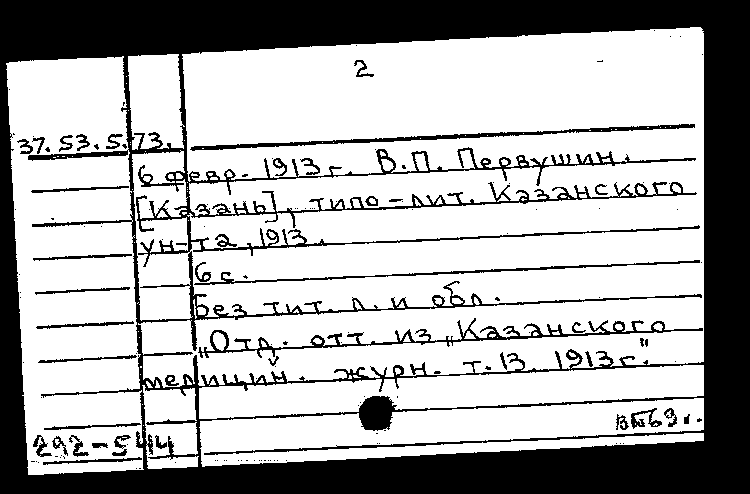 2
37.53.5.73.
6 февр. 1913 г. В.П. Первушин.
[Казань], типо-лит. Казанского
ун-та, 1913.
6 с.
Без тит. л. и обл.
„Отд. отт. из „Казанского
медицин. журн. т. 13. 1913 г."
292-544
69 г.